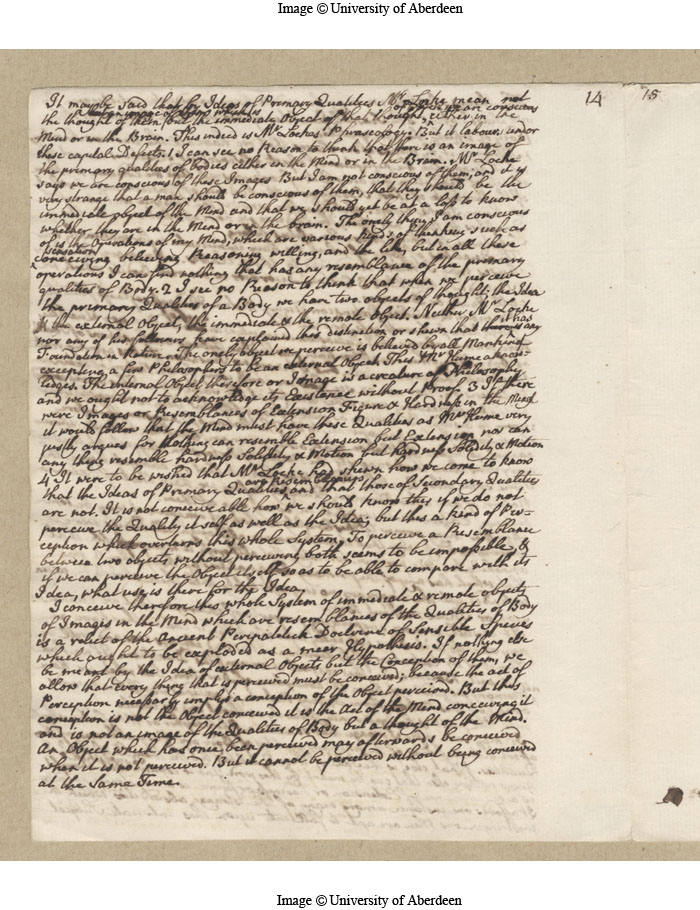 Image © University of Aberdeen
14
15
It may be said that by Ideas of Primary Qualities Mr Locke mean not
the thought of them, but the immediate Object of that thought, either in the
of which we are conscious
Mind or in the Brain. This indeed is Mr Lockes Phraseology. But it labours under
these capital Defects. 1 I can see no Reason to think that there is an image of
the primary qualities of bodies either in the Mind or in the Brain. Mr Locke
says we are conscious of these Images But I am not conscious of them; and it is
very strange that a man should be conscious of them, that they should be the
immediate object of the Mind and that we should yet be at a loss to know
whether they are in the Mind or in the brain. The onely thing I am conscious
of is the Operations of my Mind, which are various kinds of thinking such as
sensation
conceiving believing Reasoning willing, and the like, but in all these
operations I can find nothing that has any resemblance of the primary
qualities of Body. 2 I see no Reason to think that when we perceive
the primary Qualities of a Body we have two objects of thought; the Idea
& the external Object, the immediate & the remote object. Neither Mr Locke
nor any of his followers have explained this distinction or shewn that it has any
Foundation in Nature. The onely object we perceive is believed by all Mankind
excepting a few Philosophers to be an external Object. This Mr Hume acknow-
ledges. The internal Object therefore or Image is a creature of Philosophy
and we ought not to acknowledge its Existence without Proof. 3 If there
were Images or Resemblances of Extension Figure & Hardness in the Mind
it would follow that the Mind must have these Qualities as Mr Hume very
justly argues for Nothing can resemble Extension but Extension nor can
any thing resemble hardness Solidity & Motion but Hardness Solidity & Motion
4 It were to be wished that Mr Locke had shewn how we come to know
that the Ideas of Primary Qualities are Resemblances and that those of Secondary Qualities
are not. It is not conceiveable how we should know this if we do not
perceive the Quality it self as well as the Idea; but this a kind of Per-
ception which overturns this whole System. To perceive a Resemblance
between two objects without perceiving both seems to be impossible, &
if we can perceive the Object it self so as to be able to compare with its
Idea, what use is there for the Idea
I conceive therefore this whole System of immediate & remote objects
of Images in the Mind which are resemblances of the Qualities of Body
is a relict of the Ancient Peripatetick Doctrine of Sensible Species
which ought to be exploded as a meer Hypothesis. If nothing else
be meant by the Idea of external Objects but the Conception of them, we
allow that every thing that is perceived must be conceived; because the act of
Perception necessarly implys a conception of the Object perceived. But this
conception is not the Object conceived it is the Act of the Mind conceiving it
and is not an image of the Qualities of Body but a thought of the Mind.
An Object which has once been perceived may afterwards be conceived
when it is not perceived. But it cannot be perceived without being conceived
at the Same Time.
Image © University of Aberdeen